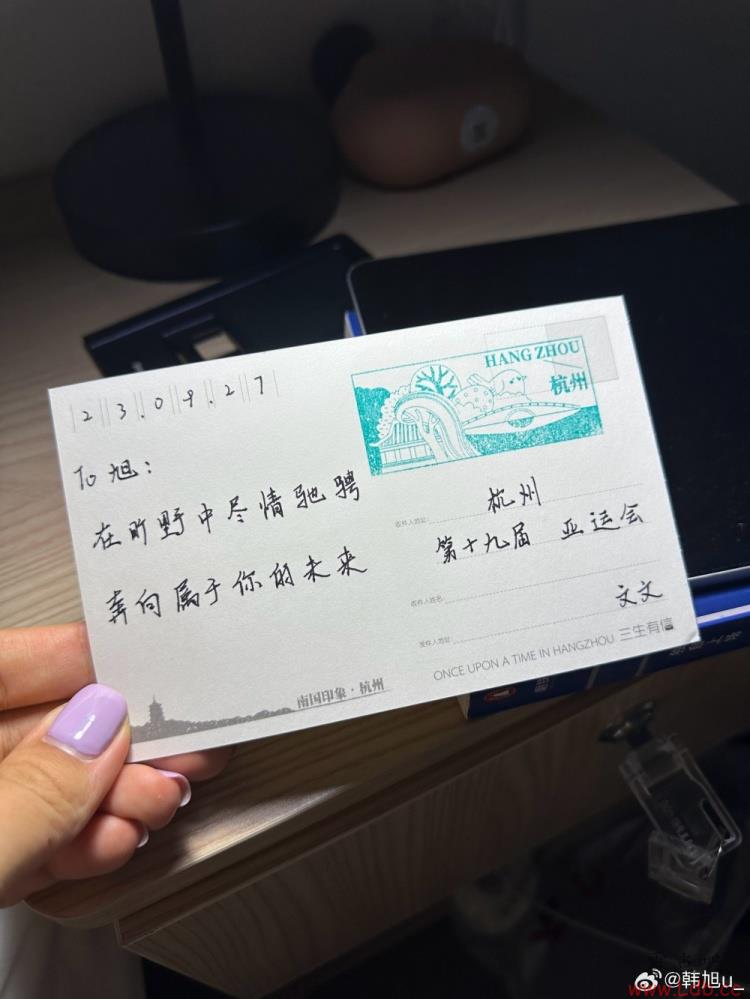 HANG ZHOU
杭州
23.09.27
To 旭：
在旷野中尽情驰骋
奔向属于你的未来
收件人地址:
杭州
第十九届 亚运会
收件人姓名:
文文
发件人地址:
ONCE UPON A TIME IN HANGZHOU 三生有信
南国印象·杭州
@韩旭u_
www.Ldb.cc